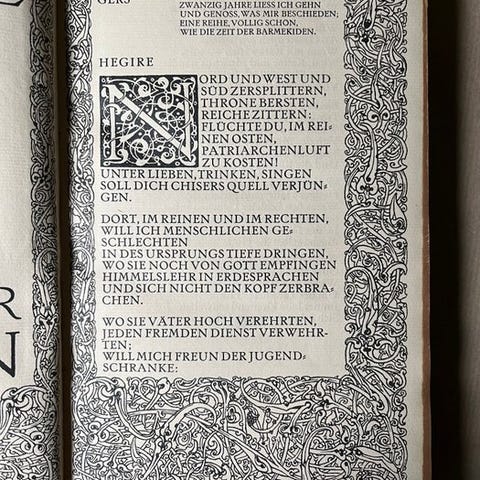 GERS
ZWANZIG JAHRE LIESS ICH GEHN
UND GENOSS, WAS MIR BESCHIEDEN;
EINE REIHE, VÖLLIG SCHÖN,
WIE DIE ZEIT DER BARMEKIDEN.
HEGIRE
NORD UND WEST UND
SÜD ZERSPLITTERN,
THRONE BERSTEN,
REICHE ZITTERN:
FLÜCHTE DU, IM REI-
NEN OSTEN,
PATRIARCHENLUFT
ZU KOSTEN!
UNTER LIEBEN, TRINKEN, SINGEN
SOLL DICH CHISERS QUELL VERJÜN-
GEN.
DORT, IM REINEN UND IM RECHTEN,
WILL ICH MENSCHLICHEN GE-
SCHLECHTEN
IN DES URSPRUNGS TIEFE DRINGEN,
WO SIE NOCH VON GOTT EMPFINGEN
HIMMELSLEHR IN ERDESPRACHEN
UND SICH NICHT DEN KOPF ZERBRA-
CHEN.
WO SIE VÄTER HOCH VEREHRTEN,
JEDEN FREMDEN DIENST VERWEHR-
TEN;
WILL MICH FREUN DER JUGEND-
SCHRANKE:
R
N